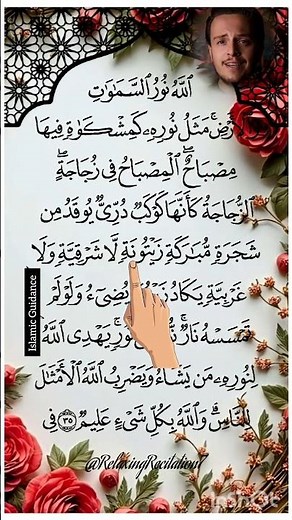 ٱللَّهُ نُورُ ٱلسَّمَٰوَٰتِ
مَثَلُ نُورِهِۦ كَمِشْكَوٰةٍ فِيهَا
مِصْبَاحٌ ۖ ٱلْمِصْبَاحُ فِى زُجَاجَةٍ ۖ
ٱلزُّجَاجَةُ كَأَنَّهَا كَوْكَبٌ دُرِّىٌّ يُوقَدُ مِن
شَجَرَةٍ مُّبَٰرَكَةٍ زَيْتُونَةٍ لَّا شَرْقِيَّةٍ وَلَا
غَرْبِيَّةٍ يَكَادُ زَيْتُهَا يُضِىٓءُ وَلَوْ لَمْ
تَمْسَسْهُ نَارٌ ۚ نُورٍ ۗ يَهْدِى ٱللَّهُ
لِنُورِهِۦ مَن يَشَآءُ ۚ وَيَضْرِبُ ٱللَّهُ ٱلْأَمْثَٰلَ
لِلنَّاسِ ۗ وَٱللَّهُ بِكُلِّ شَىْءٍ عَلِيمٌ ٣٥ فِى
Islamic Guidance
@RelaxingRecitation1